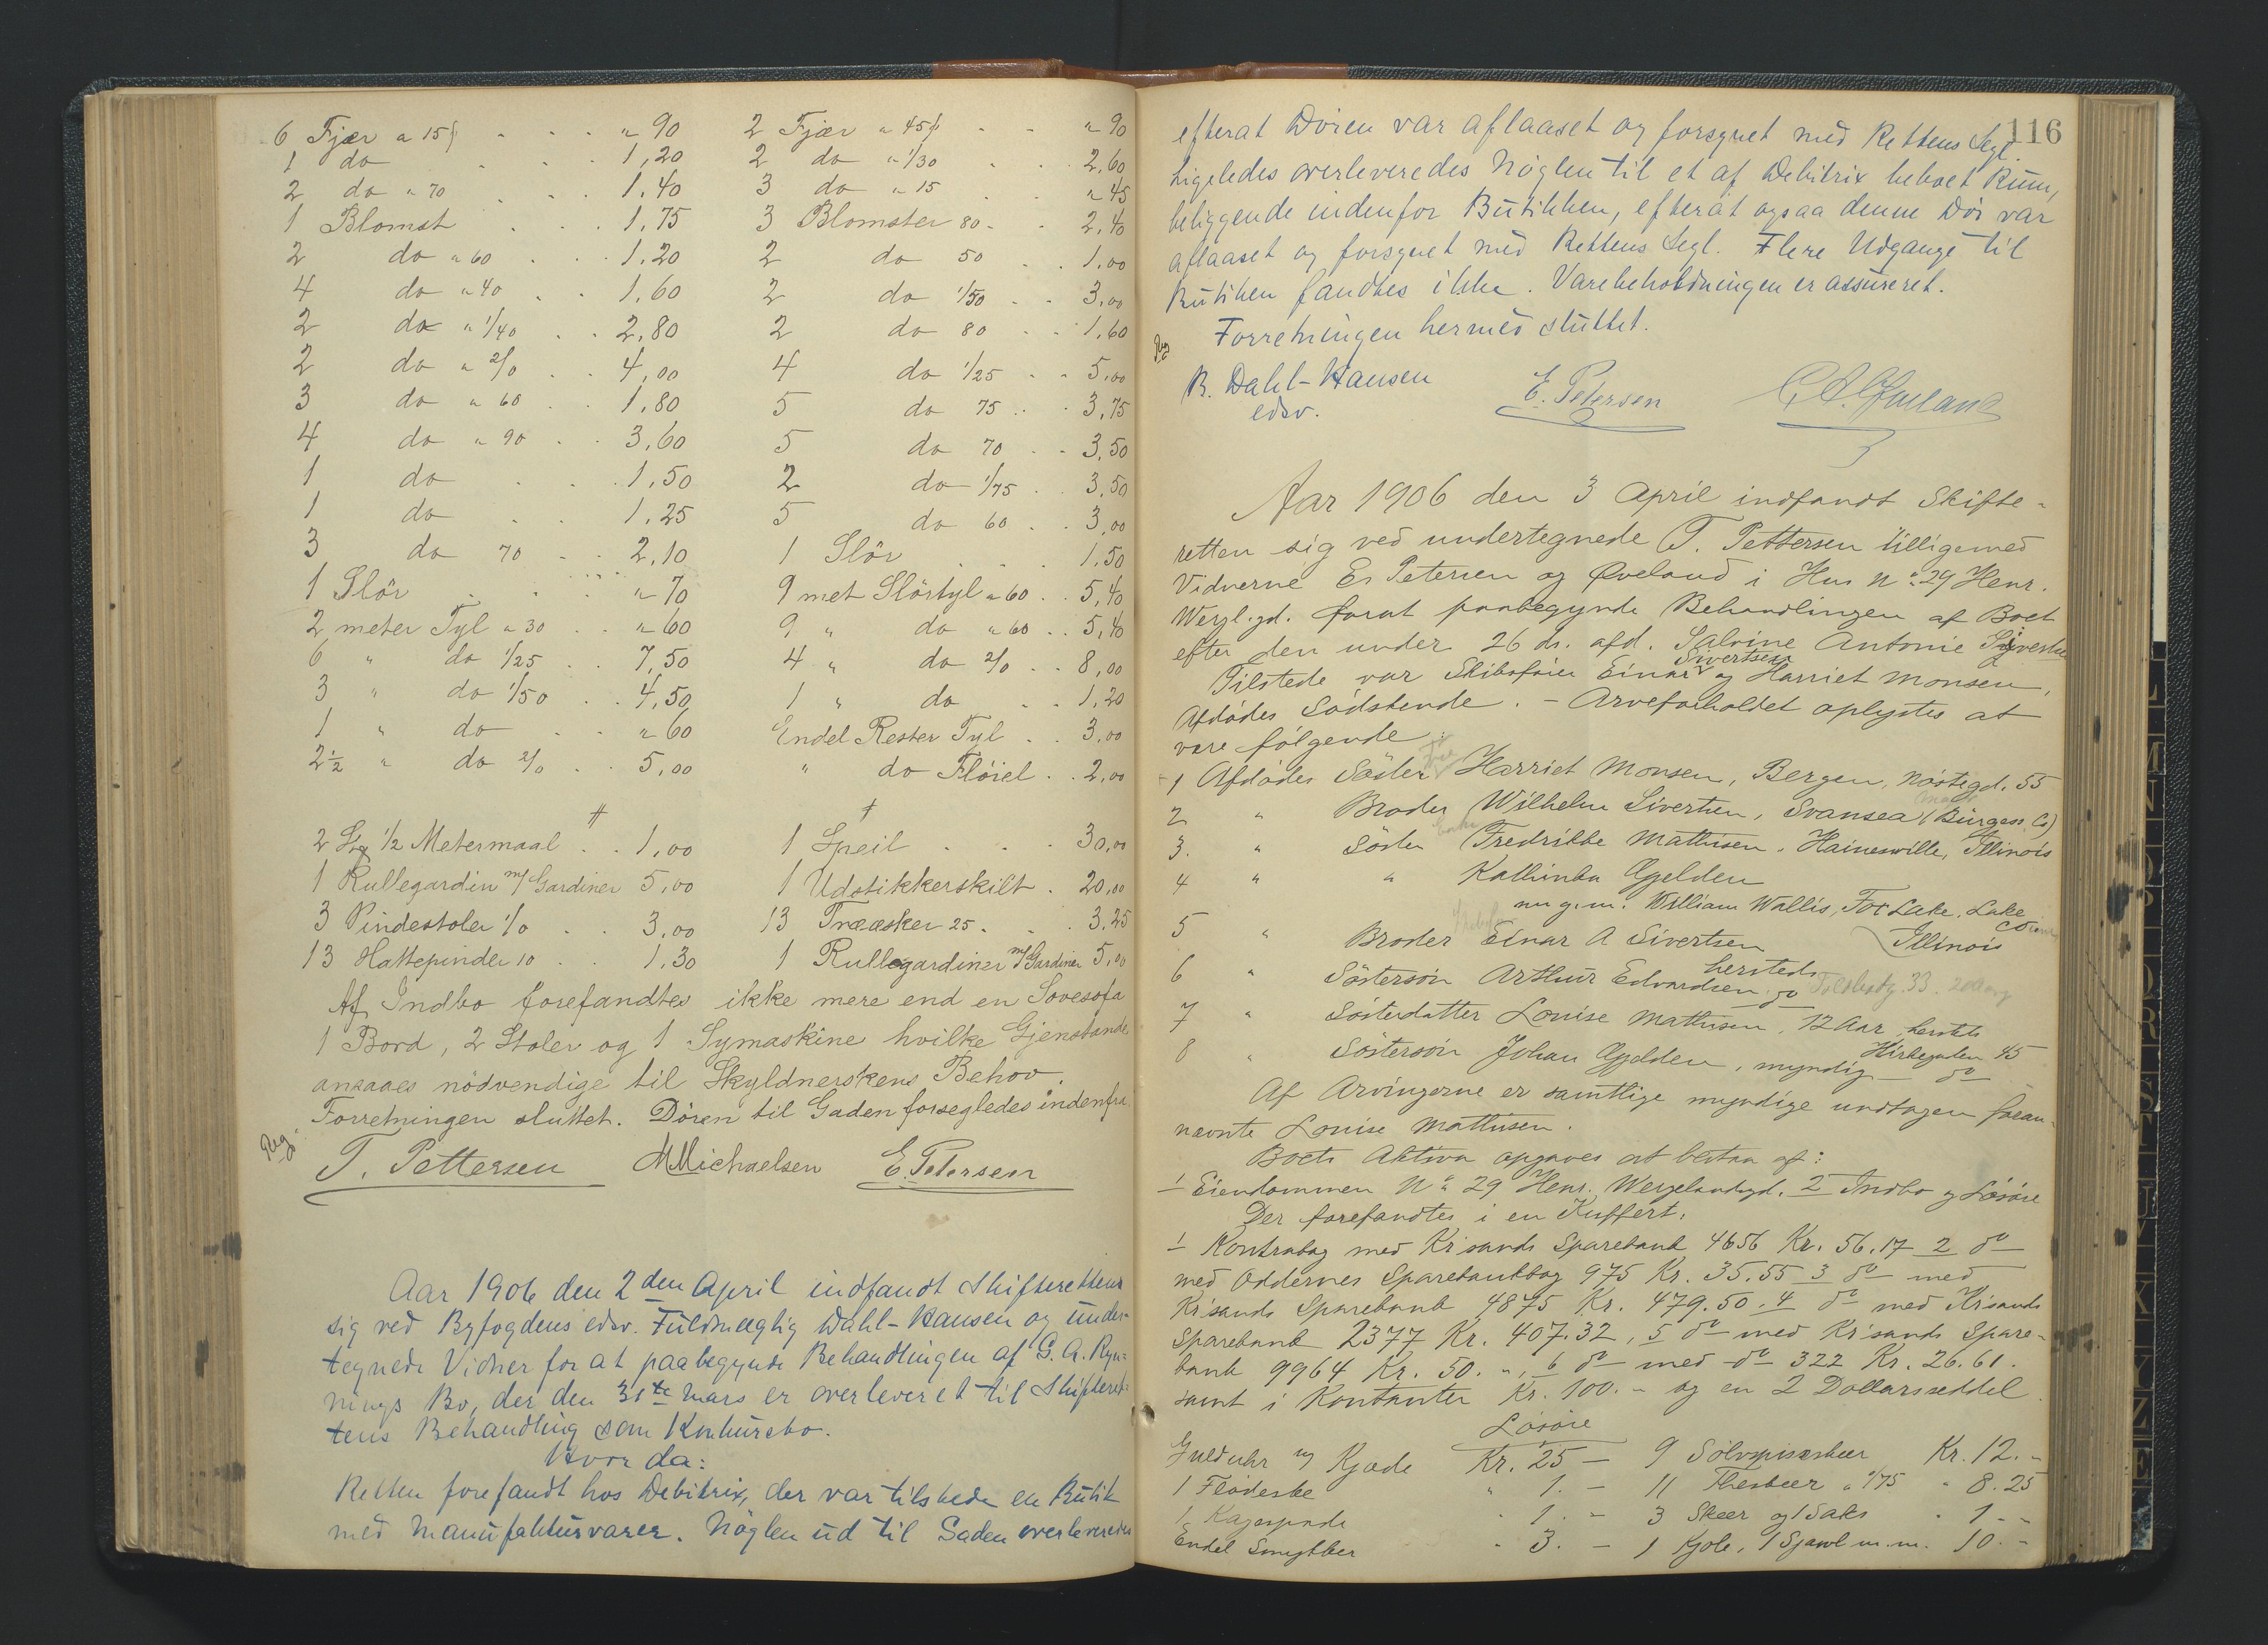 6 Fjær a 15f . . . " 90
1 do . . . 1,20
2 do " 70 . . . 1.40
1 Blomst . . . 1,75
2 do " 60 . . . 1.20
4 do " 40 . . 1,60
2 do " 1/40 . . 2.80
2 do " 2/0 . . 4,00
3 do " 60 . . 1,80
4 do " 90 . . 3.60
1 do . . . 1.50
1 do . . . 1.25
3 do 70 . . 2.10
1 Slör . . . " 70
2 meter Tyl a 30 . . " 60
6 " do 1/25 . . 7,50
3 " do 1/50 . . 4,50
1 " do . . " 60
2½ " do 2/0 . . 5,00
2 Fjær a 45f . . " 90
2 do " 1/30 . . 2,60
3 do " 15 . . " 45
3 Blomster 80 . . 2,40
2 do 50 . . 1.00
2 do 1/50 . . 3,00
2 do 80 . . 1.60
4 do 1/25 . . 5,00
5 do 75 . . 3,75
5 do 70 . . 3,50
2 do 1/75 . . 3,50
5 do 60 . . 3,00
1 Slör . . . 1,50
9 met Slörtyl a 60 . . 5,40
9 " do " 60 . . 5,40
4 " do 2/0 . . 8,00
1 " do . . 1,20
Endel Rester Tyl . . 3,00
" do Flöiel . . 2,00
2 1/2 Metermaal . . 1,00
1 Rullegardin m/ Gardiner 5,00
3 Pindestoler 1/0 . . 3,00
13 Hattepinder 10 . . 1,30
1 Speil . . . 30,00
1 Udstikkerskilt . 20,00
13 Træesker 25 . . . 3.25
1 Rullegardiner m/ Gardiner 5,00
Af Indbo forefandtes ikke mere end en Sovesofa
1 Bord, 2 Stoler og 1 Symaskine hvilke Gjenstande
ansaaes nödvendige til Skyldnerskens Behov.
Forretningen sluttet. Dören til Gaden forsegledes indenfra.
T. Pettersen MMichaelsen E. Petersen
Aar 1906 den 2den April indfandt Skifteretten
sig ved Byfogdens edsv. Fuldmægtig Dahl-Hansen og under-
tegnede Vidner for at paabegynde Behandlingen af G. A. Ryn-
nings Bo, der den 31te Mars er overleveret til Skifteret-
tens Behandling som Konkursbo.
Hvor da:
Retten forefandt hos Debitrix, der var tilstede en Butik
med Manufakturvarer. Nöglen ud til Gaden overleveredes
116
efterat Dören var aflaaset og forsynet med Rettens Segl.
Ligeledes overleveredes Nöglen til et af Debitrix beboet Rum,
beliggende indenfor Butikken, efterat ogsaa denne Dör var
aflaaset og forsynet med Rettens Segl. Flere Udgange til
Butiken fandtes ikke. Varebeholdningen er assureret.
Forretningen hermed sluttet.
B. Dahl-Hansen
edsv.
E. Petersen
Aar 1906 den 3 April indfandt Skifte-
retten sig ved undertegnede T. Pettersen tilligemed
Vidnerne Es Petersen og Øveland i Hus No 29 Henr.
Wergl.gd. forat paabegynde Behandlingen af Boet
efter den under 26 ds. afd. Salvine Antonie Sivertsen
Tilstede var Skibsförer Einar Sivertsen og Harriet Monsen,
Afdödes Södskende. - Arveforholdet oplystes at
være fölgende:
1 Afdödes Söster Harriet Monsen, Bergen, Nöstegd. 55
2 " Broder Wilhelm Sivertsen, Svansea (Burgess Co)
3. " Söster Fredrikke Mathisen, Hainesville, Illinois
4 " " Kathinka Gjelden
nu g.m. William Wallis, Fox Lake, Lake
Co
Illinois
5 " Broder Einar A Sivertsen
hersteds
6 " Söstersön Arthur Edvardsen do
7 " Sösterdatter Louise Mathisen, 12 Aar, hersteds
8 " Söstersön Johan Gjelden, myndig - do
Kirkegaten 45
Af Arvingerne er samtlige myndige undtagen foran-
nævnte Louise Mathisen.
Boets Aktiva opgaves at bestaa af:
1 Eiendommen No 29 Henr. Wergelandsgd. 2 Indbo og Lösöre
Der forefandtes i en Kuffert.
1 Kontrabog med Kr'sands Sparebank 4656 Kr. 56.17 2 do
med Oddernes Sparebankbog 975 Kr. 35.55 3 do med
Kr'sands Sparebank 4875 Kr. 479.50. 4 do med Kr'sands
Sparebank 2377 Kr. 407.32, 5 do med Kr'sands Spare-
bank 9964 Kr. 50. ", 6 do med do 322 Kr. 26.61.
samt i Kontanter Kr. 100. " og en 2 Dollarsseddel
Lösöre
Gulduhr og Kjæde Kr. 25 —
1 Flödeske " 1. —
1 Kagespade " 1. —
Endel Smykker " 3. —
9 Sölvspiseskeer Kr. 12. "
11 Theskeer a "/75 " 8.25
3 Skeer og 1 Saks " 1 - -
1 Kjole, 1 Sjawl m.m. 10. -